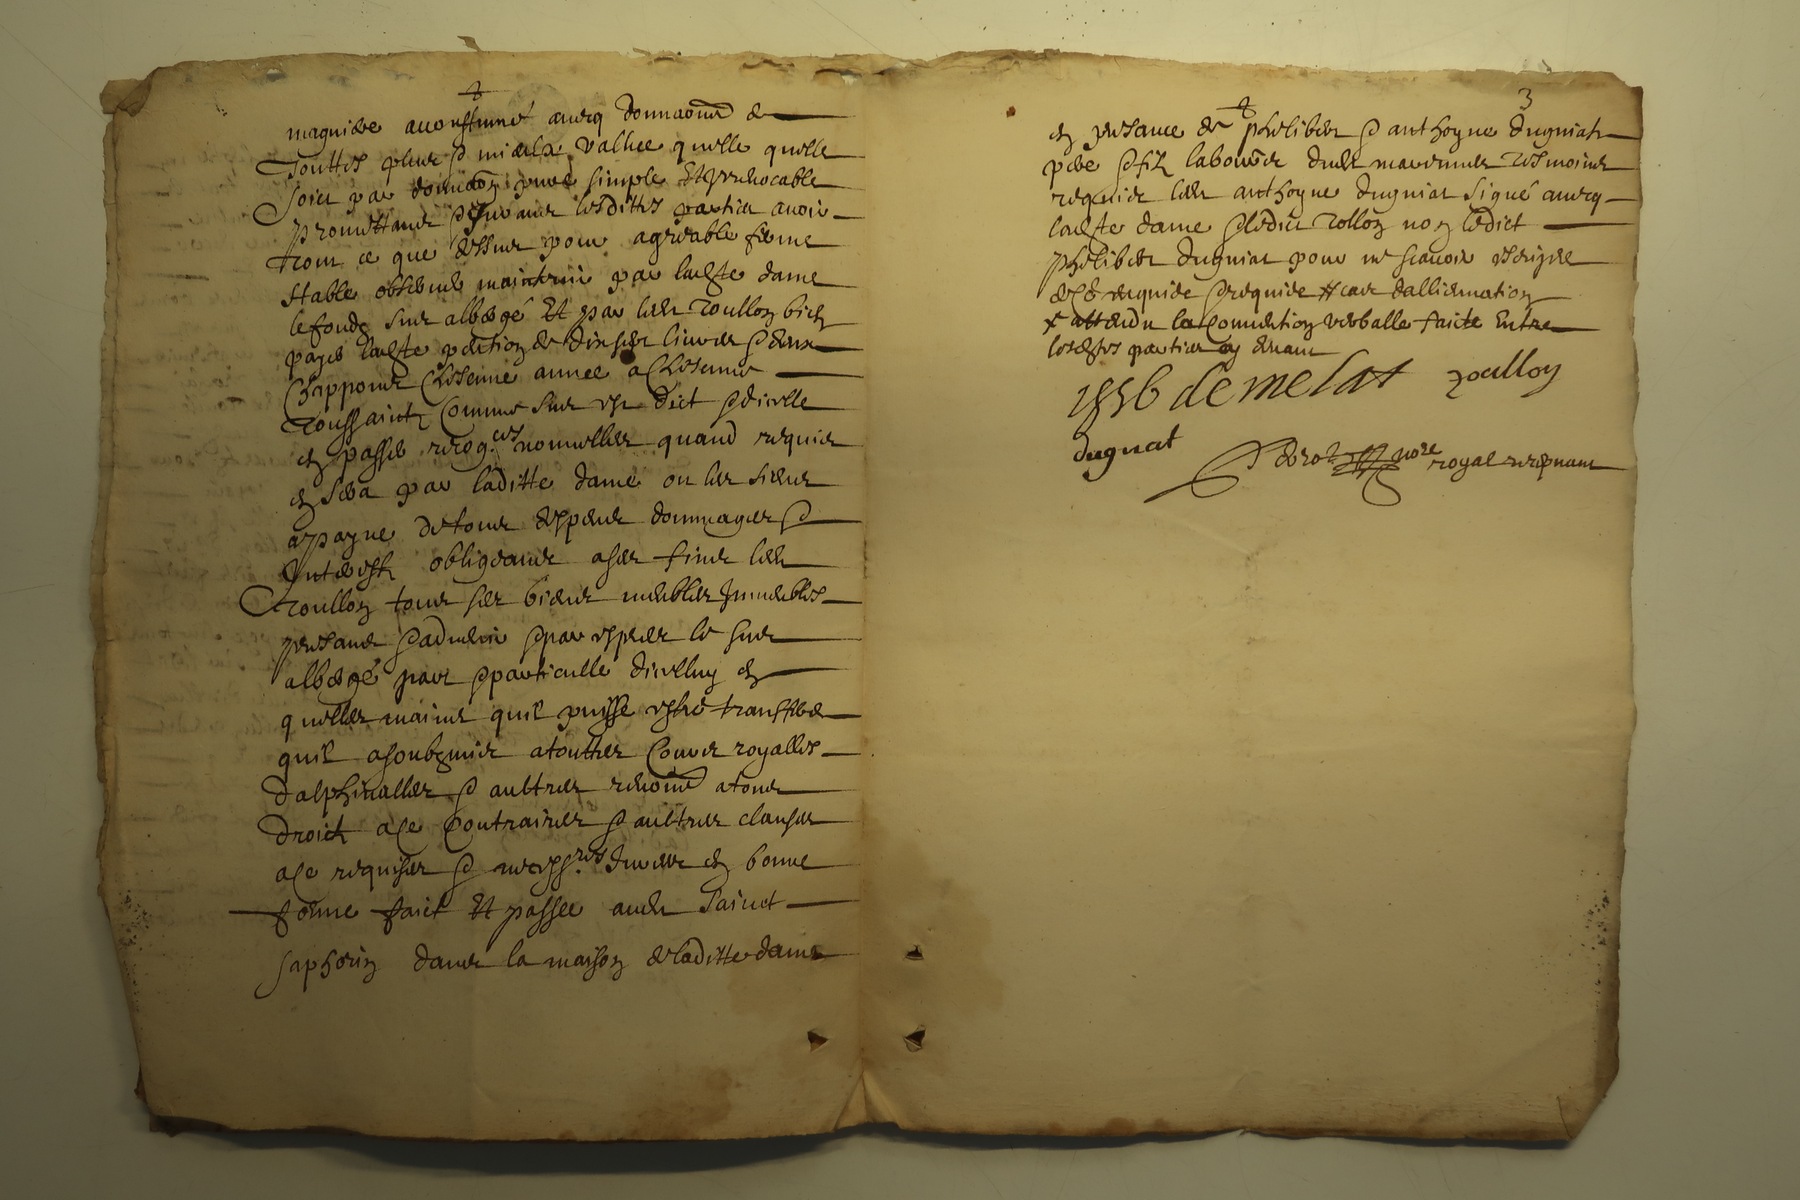 magniere accoustumé avecq donnaōns de
Touttes plus & mieulx vallue quelle quelle
soict par donnaōn pure simple Et Irrevocable
promettant & jurant lesdittes parties avoir
tout ce que dessus pour agreable ferme
stable observe maintenir par ladte dame
le fonds sus albergé Et par led Toullon bien
payer ladte pention de dix livres & deux
Chappons Chescune annee a Chescune
Toussaincts Comme sus est dict & dicelle
en passer recog.ces nouvelles quand requis
en sera par laditte dame ou les siens
a payne de tous despens dommages &
Interests obligeant a ses fins led
Toullon tous ses biens meubles Immeubles
presans & advenir & par expres le sus
albergé pars & particulle dicelluy en
quelles mains quil puisse estre transfere
quil a soubzmis a touttes Cours royalles
dalphinalles & aultres renoncé a tous
droicts a ce Contraires & aultres clauses
a ce requises & necess.res Inseree en bonne
forme faict Et passee aud Sainct
saphorin dans la maison de laditte dame
3
en presance de phelibert & anthoyne dugniat
pere & filz laboureur dud tesmoins
requis led anthoyne dugniat signé avecq
ladte dame & ledict Tollon non ledict
phelibert dugniat pour ne scavoir escripre
de ce enquis & requis
attendu la Convention verballe faicte Entre
lesdtes parties cy devant
de melat Toullon
dugnat
nore royal recepvant